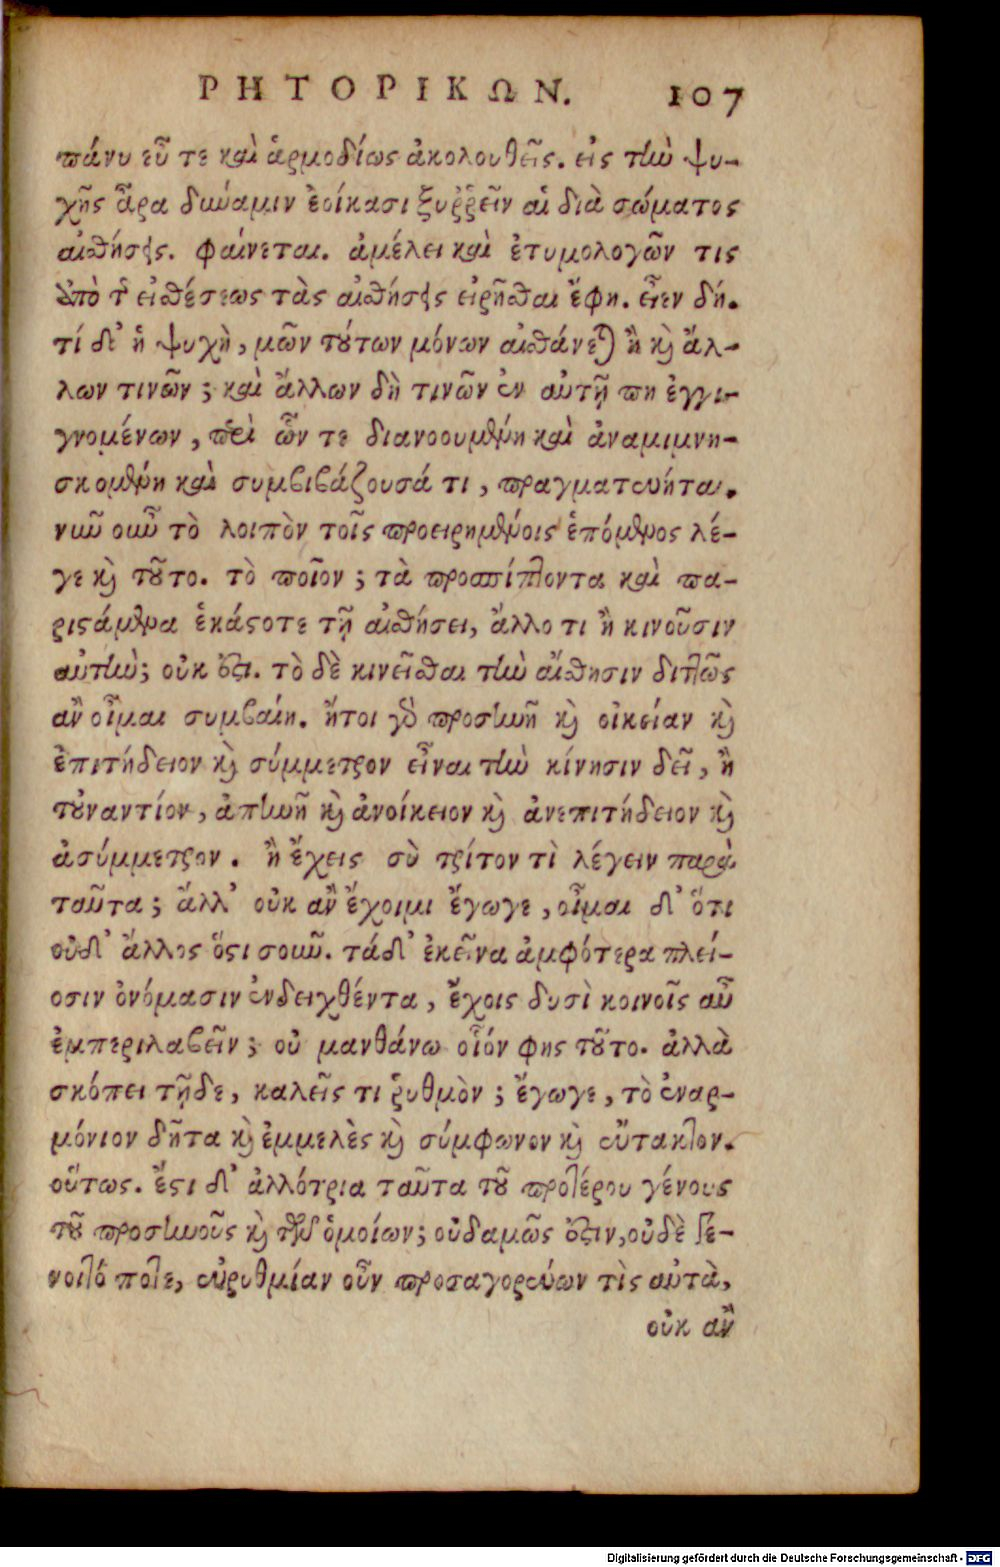 ΡΗΤΟΡΙΚΩΝ. 107
πάνυ εὖ τε καὶ ἁρμοδίως ἀκολουθεῖς. εἰς τὴν ψυ-
χῆς ἄρα δύναμιν ἐοίκασι ξυῤῥεῖν αἱ διὰ σώματος
αἰσθήσεις. φαίνεται. ἀμέλει καὶ ἐτυμολογῶν τις
ἀπὸ τῆς εἰσθέσεως τὰς αἰσθήσεις εἰρῆσθαι ἔφη. εἶεν δή.
τί δ' ἡ ψυχὴ, μῶν τούτων μόνων αἰσθάνεται ἢ καὶ ἄλ-
λων τινῶν; καὶ ἄλλων δὴ τινῶν ἐν αὐτῇ πη ἐγγι-
γνομένων, περὶ ὧν τε διανοουμένη καὶ ἀναμιμνη-
σκομένη καὶ συμβιβάζουσά τι, πραγματεύηται.
νῦν οὖν τὸ λοιπὸν τοῖς προειρημένοις ἑπόμενος λέ-
γε καὶ τοῦτο. τὸ ποῖον; τὰ προσπίπτοντα καὶ πα-
ριστάμενα ἑκάστοτε τῇ αἰσθήσει, ἄλλο τι ἢ κινοῦσιν
αὐτήν; οὐκ ἔστι. τὸ δὲ κινεῖσθαι τὴν αἴσθησιν διττῶς
ἂν οἶμαι συμβαίη. ἤτοι γὰρ προσηνῆ καὶ οἰκείαν καὶ
ἐπιτήδειον καὶ σύμμετρον εἶναι τὴν κίνησιν δεῖ, ἢ
τοὐναντίον, ἀπηνῆ καὶ ἀνοίκειον καὶ ἀνεπιτήδειον καὶ
ἀσύμμετρον. ἢ ἔχεις σὺ τρίτον τὶ λέγειν παρὰ
ταῦτα; ἀλλ' οὐκ ἂν ἔχοιμι ἔγωγε, οἶμαι δ' ὅτι
οὐδ' ἄλλος ὅστισοῦν. τάδ' ἐκεῖνα ἀμφότερα πλεί-
οσιν ὀνόμασιν ἐνδειχθέντα, ἔχοις δυσὶ κοινοῖς αὖ
ἐμπεριλαβεῖν; οὐ μανθάνω οἷόν φης τοῦτο. ἀλλὰ
σκόπει τῇδε, καλεῖς τι ῥυθμὸν; ἔγωγε, τὸ ἐναρ-
μόνιον δῆτα καὶ ἐμμελὲς καὶ σύμφωνον καὶ εὔτακτον.
οὕτως. ἔστι δ' ἀλλότρια ταῦτα τοῦ προτέρου γένους
τοῦ προσηνοῦς καὶ τῶν ὁμοίων; οὐδαμῶς ἔστιν, οὐδὲ γέ-
νοιτό ποτε, εὐρυθμίαν οὖν προσαγορεύων τὶς αὐτὰ,
οὐκ ἂν
Digitalisierung gefördert durch die Deutsche Forschungsgemeinschaft - DFG